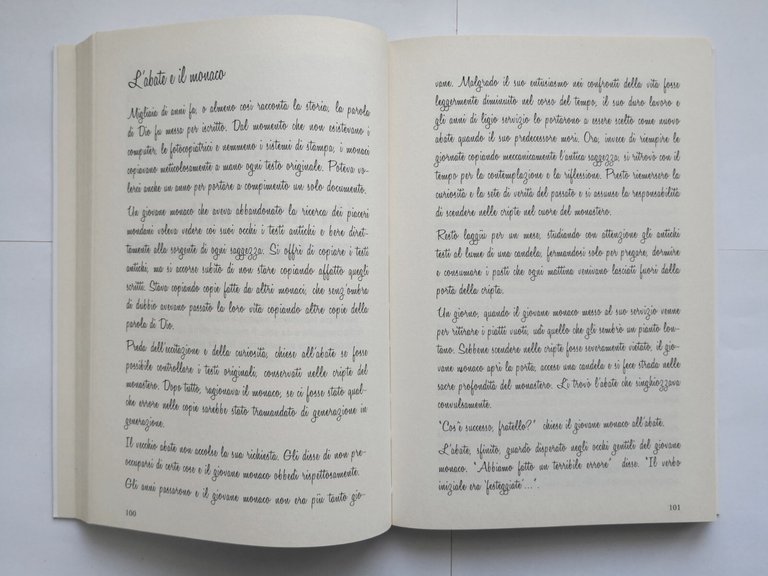 L'abate e il monaco
Migliaia di anni fa, o almeno così racconta la storia, la parola
di Dio fu messa per iscritto. Dal momento che non esistevano i
computer, le fotocopiatrici e nemmeno i sistemi di stampa, i monaci
copiavano meticolosamente a mano ogni testo originale. Poteva vo-
lerci anche un anno per portare a compimento un solo documento.
Un giovane monaco che aveva abbandonato la ricerca dei piaceri
mondani voleva vedere coi suoi occhi i testi antichi e bere diret-
tamente alla sorgente di ogni saggezza. Si offrì di copiare i testi
antichi, ma si accorse subito di non stare copiando affatto quegli
scritti. Stava copiando copie fatte da altri monaci, che senz'ombra
di dubbio avevano passato la loro vita copiando altre copie della
parola di Dio.
Preda dell'eccitazione e della curiosità, chiese all'abate se fosse
possibile controllare i testi originali, conservati nelle cripte del
monastero. Dopo tutto, ragionava il monaco, se ci fosse stato qual-
che errore nelle copie sarebbe stato tramandato di generazione in
generazione.
Il vecchio abate non accolse la sua richiesta. Gli disse di non pre-
occuparsi di certe cose e il giovane monaco obbedì rispettosamente.
Gli anni passarono e il giovane monaco non era più tanto gio-
100
vane. Malgrado il suo entusiasmo nei confronti della vita fosse
leggermente diminuito nel corso del tempo, il suo duro lavoro e
gli anni di ligio servizio lo portarono a essere scelto come nuovo
abate quando il suo predecessore morì. Ora, invece di riempire le
giornate copiando meccanicamente l'antica saggezza, si ritrovò con il
tempo per la contemplazione e la riflessione. Presto riemersero la
curiosità e la sete di verità del passato e si assunse la responsabilità
di scendere nelle cripte nel cuore del monastero.
Restò laggiù per un mese, studiando con attenzione gli antichi
testi al lume di una candela, fermandosi solo per pregare, dormire
e consumare i pasti che ogni mattina venivano lasciati fuori dalla
porta della cripta.
Un giorno, quando il giovane monaco messo al suo servizio venne
per ritirare i piatti vuoti, udì quello che gli sembrò un pianto lon-
tano. Sebbene scendere nelle cripte fosse severamente vietato, il gio-
vane monaco aprì la porta, accese una candela e si fece strada nelle
sacre profondità del monastero. Lì trovò l'abate che singhiozzava
convulsamente.
"Cos'è successo, fratello?" chiese il giovane monaco all'abate.
L'abate, sfinito, guardò disperato negli occhi gentili del giovane
monaco. "Abbiamo fatto un terribile errore" disse. "Il verbo
iniziale era 'festeggiate'...".
101